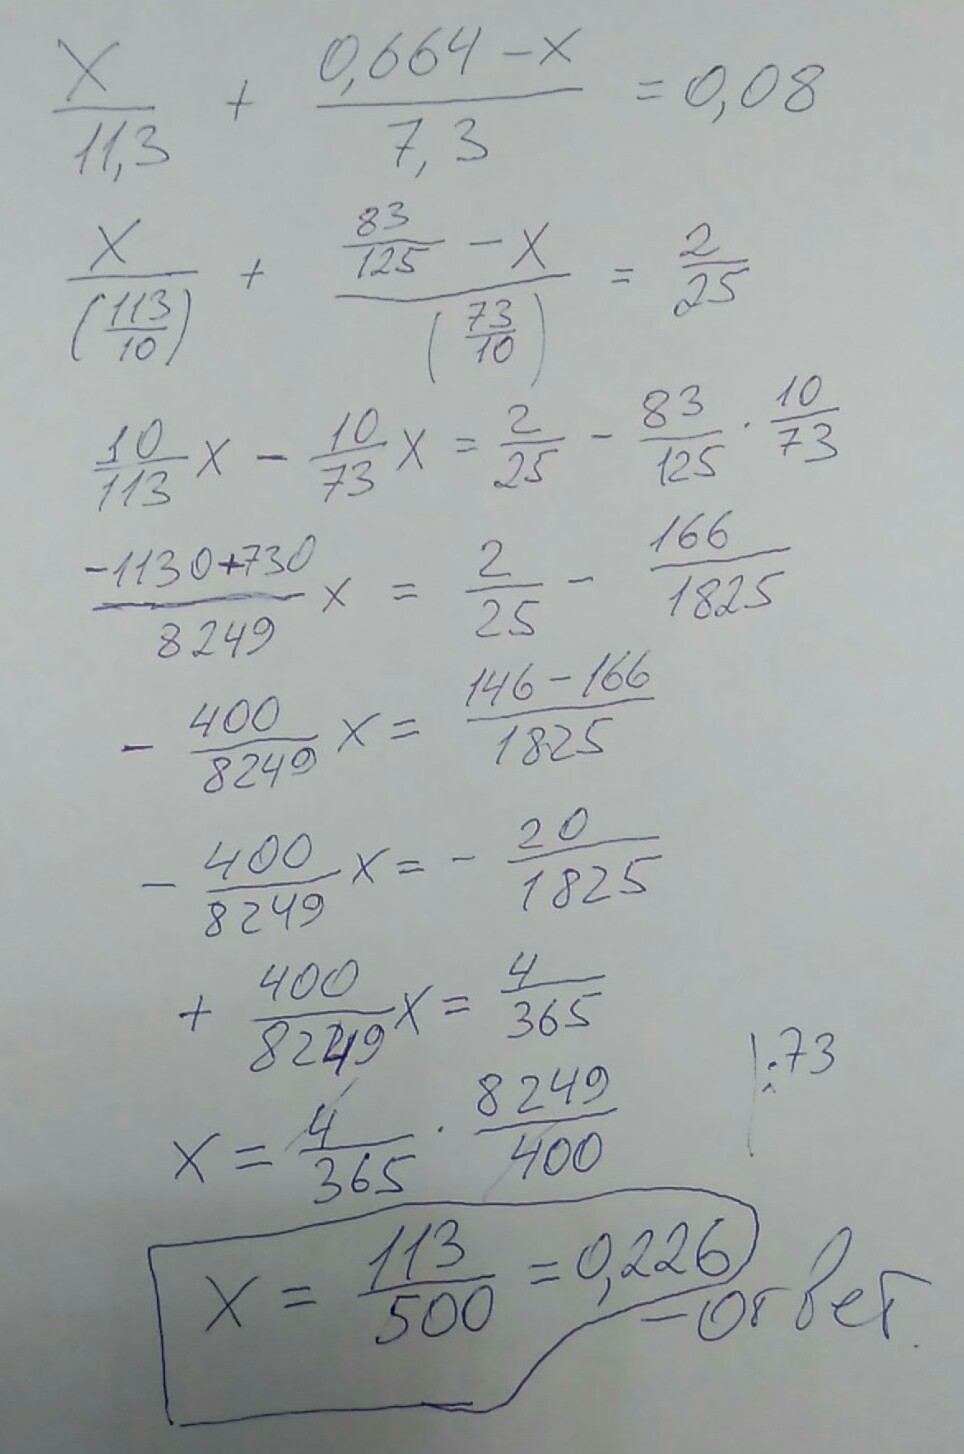 x/11,3 + (0,664 - x)/7,3 = 0,08
x/(113/10) + (83/125 - x)/(73/10) = 2/25
10/113 x - 10/73 x = 2/25 - 83/125 · 10/73
(-1130+730)/8249 x = 2/25 - 166/1825
- 400/8249 x = (146 - 166)/1825
- 400/8249 x = - 20/1825
+ 400/8249 x = 4/365
x = 4/365 · 8249/400 | :73
x = 113/500 = 0,226 - ответ.